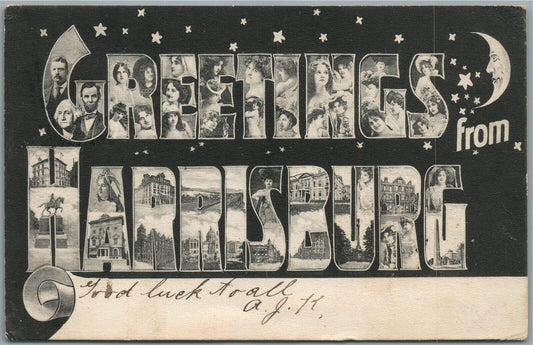 GREETINGS
from
HARRISBURG
Good luck to all
A. J. K.